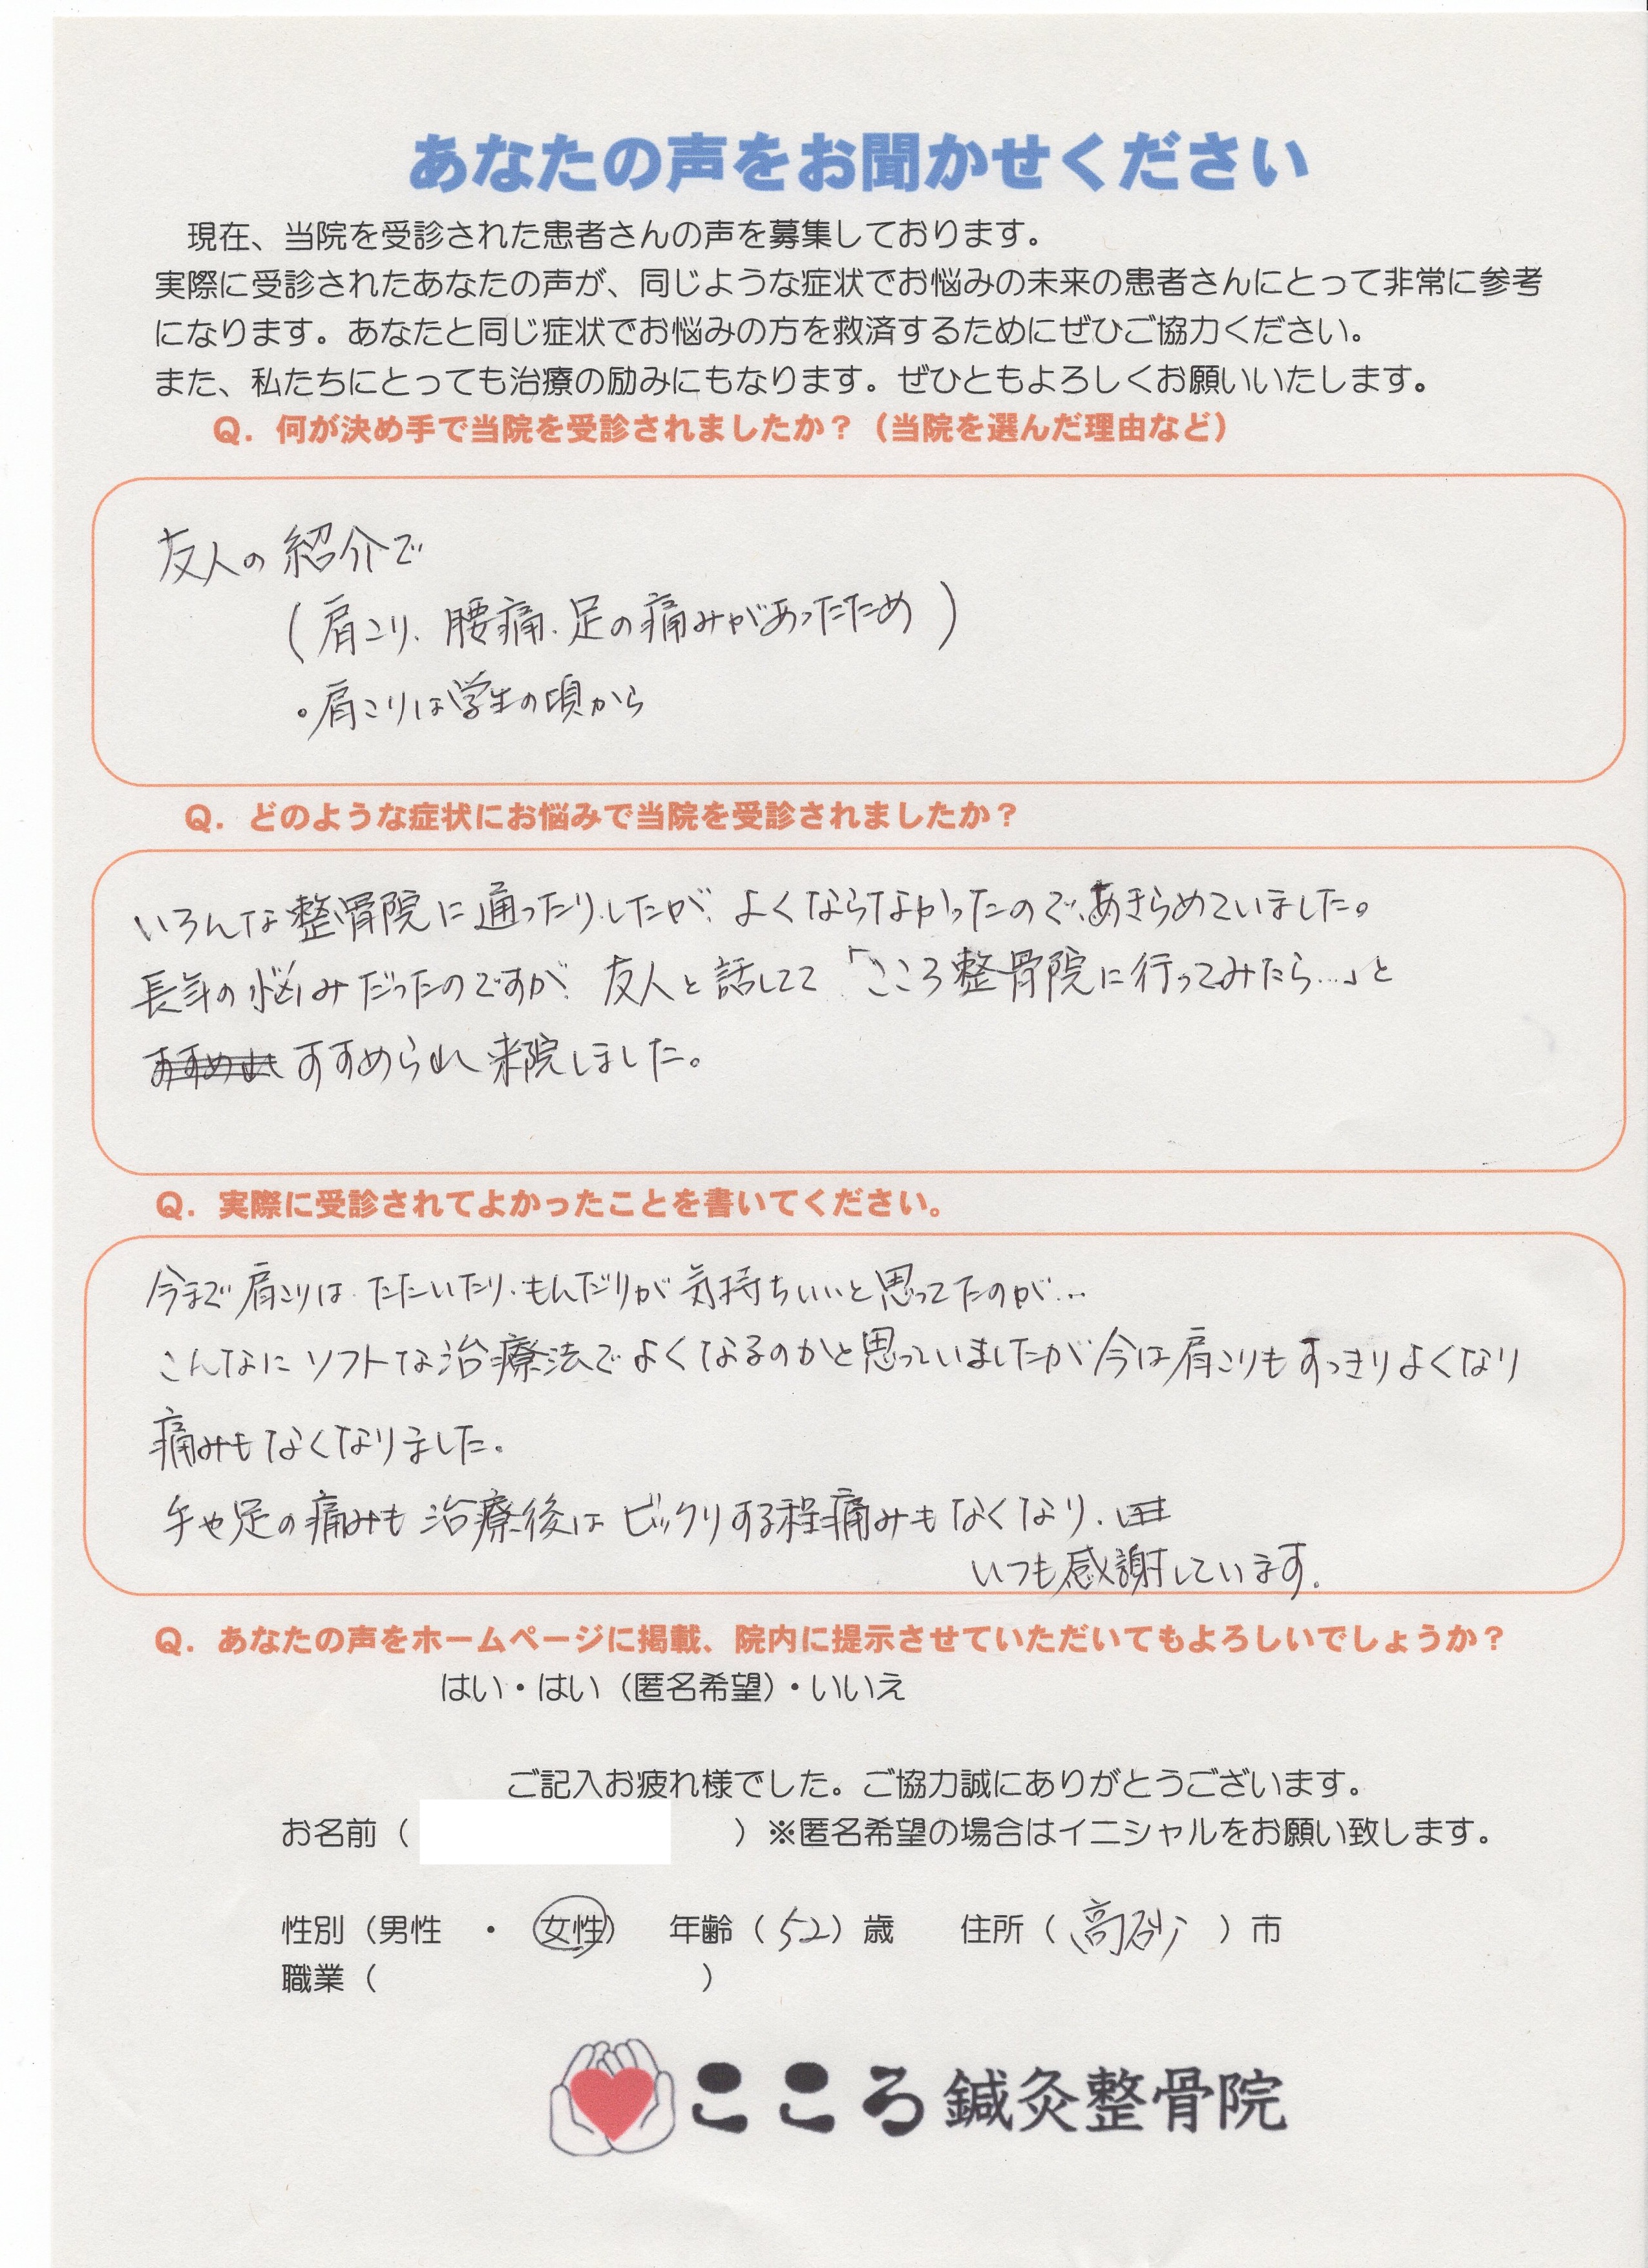 あなたの声をお聞かせください
現在、当院を受診された患者さんの声を募集しております。
実際に受診されたあなたの声が、同じような症状でお悩みの未来の患者さんにとって非常に参考
になります。あなたと同じ症状でお悩みの方を救済するためにぜひご協力ください。
また、私たちにとっても治療の励みにもなります。ぜひともよろしくお願いいたします。
Q. 何が決め手で当院を受診されましたか？（当院を選んだ理由など）
友人の紹介で
(肩こり、腰痛、足の痛みがあったため)
・肩こりは学生の頃から
Q. どのような症状にお悩みで当院を受診されましたか？
いろんな整骨院に通ったりしたが、よくならなかったので、あきらめていました。
長年の悩みだったのですが、友人と話してて「こころ整骨院に行ってみたら…」と
すすめられ来院しました。
Q. 実際に受診されてよかったことを書いてください。
今まで肩こりは、たたいたり、もんだりが気持ちいいと思ってたのが…
こんなにソフトな治療法でよくなるのかと思っていましたが今は肩こりもすっきりよくなり
痛みもなくなりました。
手や足の痛みも治療後はビックリする程痛みもなくなり、
いつも感謝しています。
Q. あなたの声をホームページに掲載、院内に提示させていただいてもよろしいでしょうか？
はい・はい（匿名希望）・いいえ
ご記入お疲れ様でした。ご協力誠にありがとうございます。
お名前（　）※匿名希望の場合はイニシャルをお願い致します。
性別（男性 ・ 女性） 年齢（52）歳 住所（高砂）市
職業（　）
こころ鍼灸整骨院